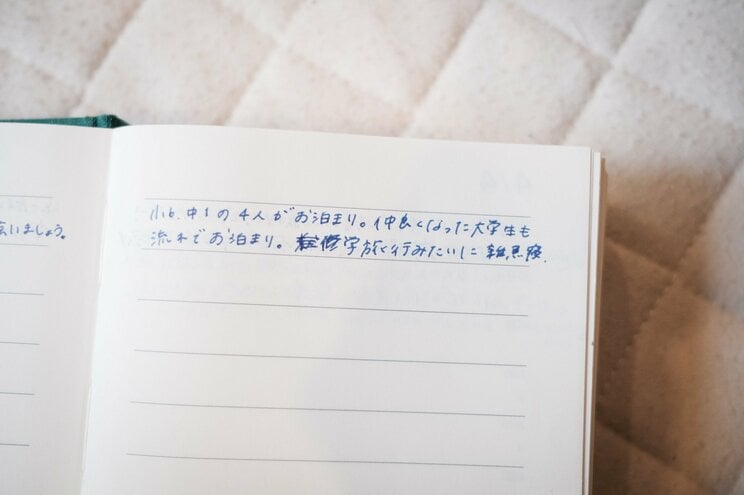 会いましょう。
小6、中1の4人がお泊まり。仲良くなった大学生も
流れでお泊まり。修学旅行みたいに雑魚寝。